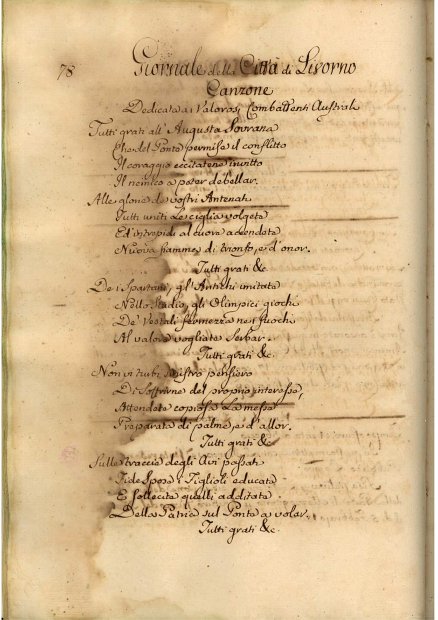 78
Giornale della Città di Livorno
Canzone
Dedicata ai Valorosi Combattenti Australi
Tutti grati all' Augusta Sovrana
Che del Ponte permise il conflitto
Il coraggio eccitatene invitto
Il nemico a poter debellar.
Alle glorie de vostri Antenati
Tutti uniti le ciglia volgete
Ed intrepidi al cuore accendete
Nuova fiamme di trionfo, e d'onor.
Tutti grati &c.
De i Spartani, gl' Antichi imitate
Nello Stadio, gli Olimpici giochi
De' Vestali fermezza ne i fuochi
Al valore vogliate Serbar.
Tutti grati &c.
Non vi turbi sinistro pensiero
Di Soffrirne del proprio interesse,
Attendete copiosa La messe
Preparata di palme, e d'allor.
Tutti grati &c.
Sulle traccie degli Avi passati
Fide Spose i Figlioli educate
E sollecite quelli additate
Della Patria sul Ponte a volar.
Tutti grati &c.